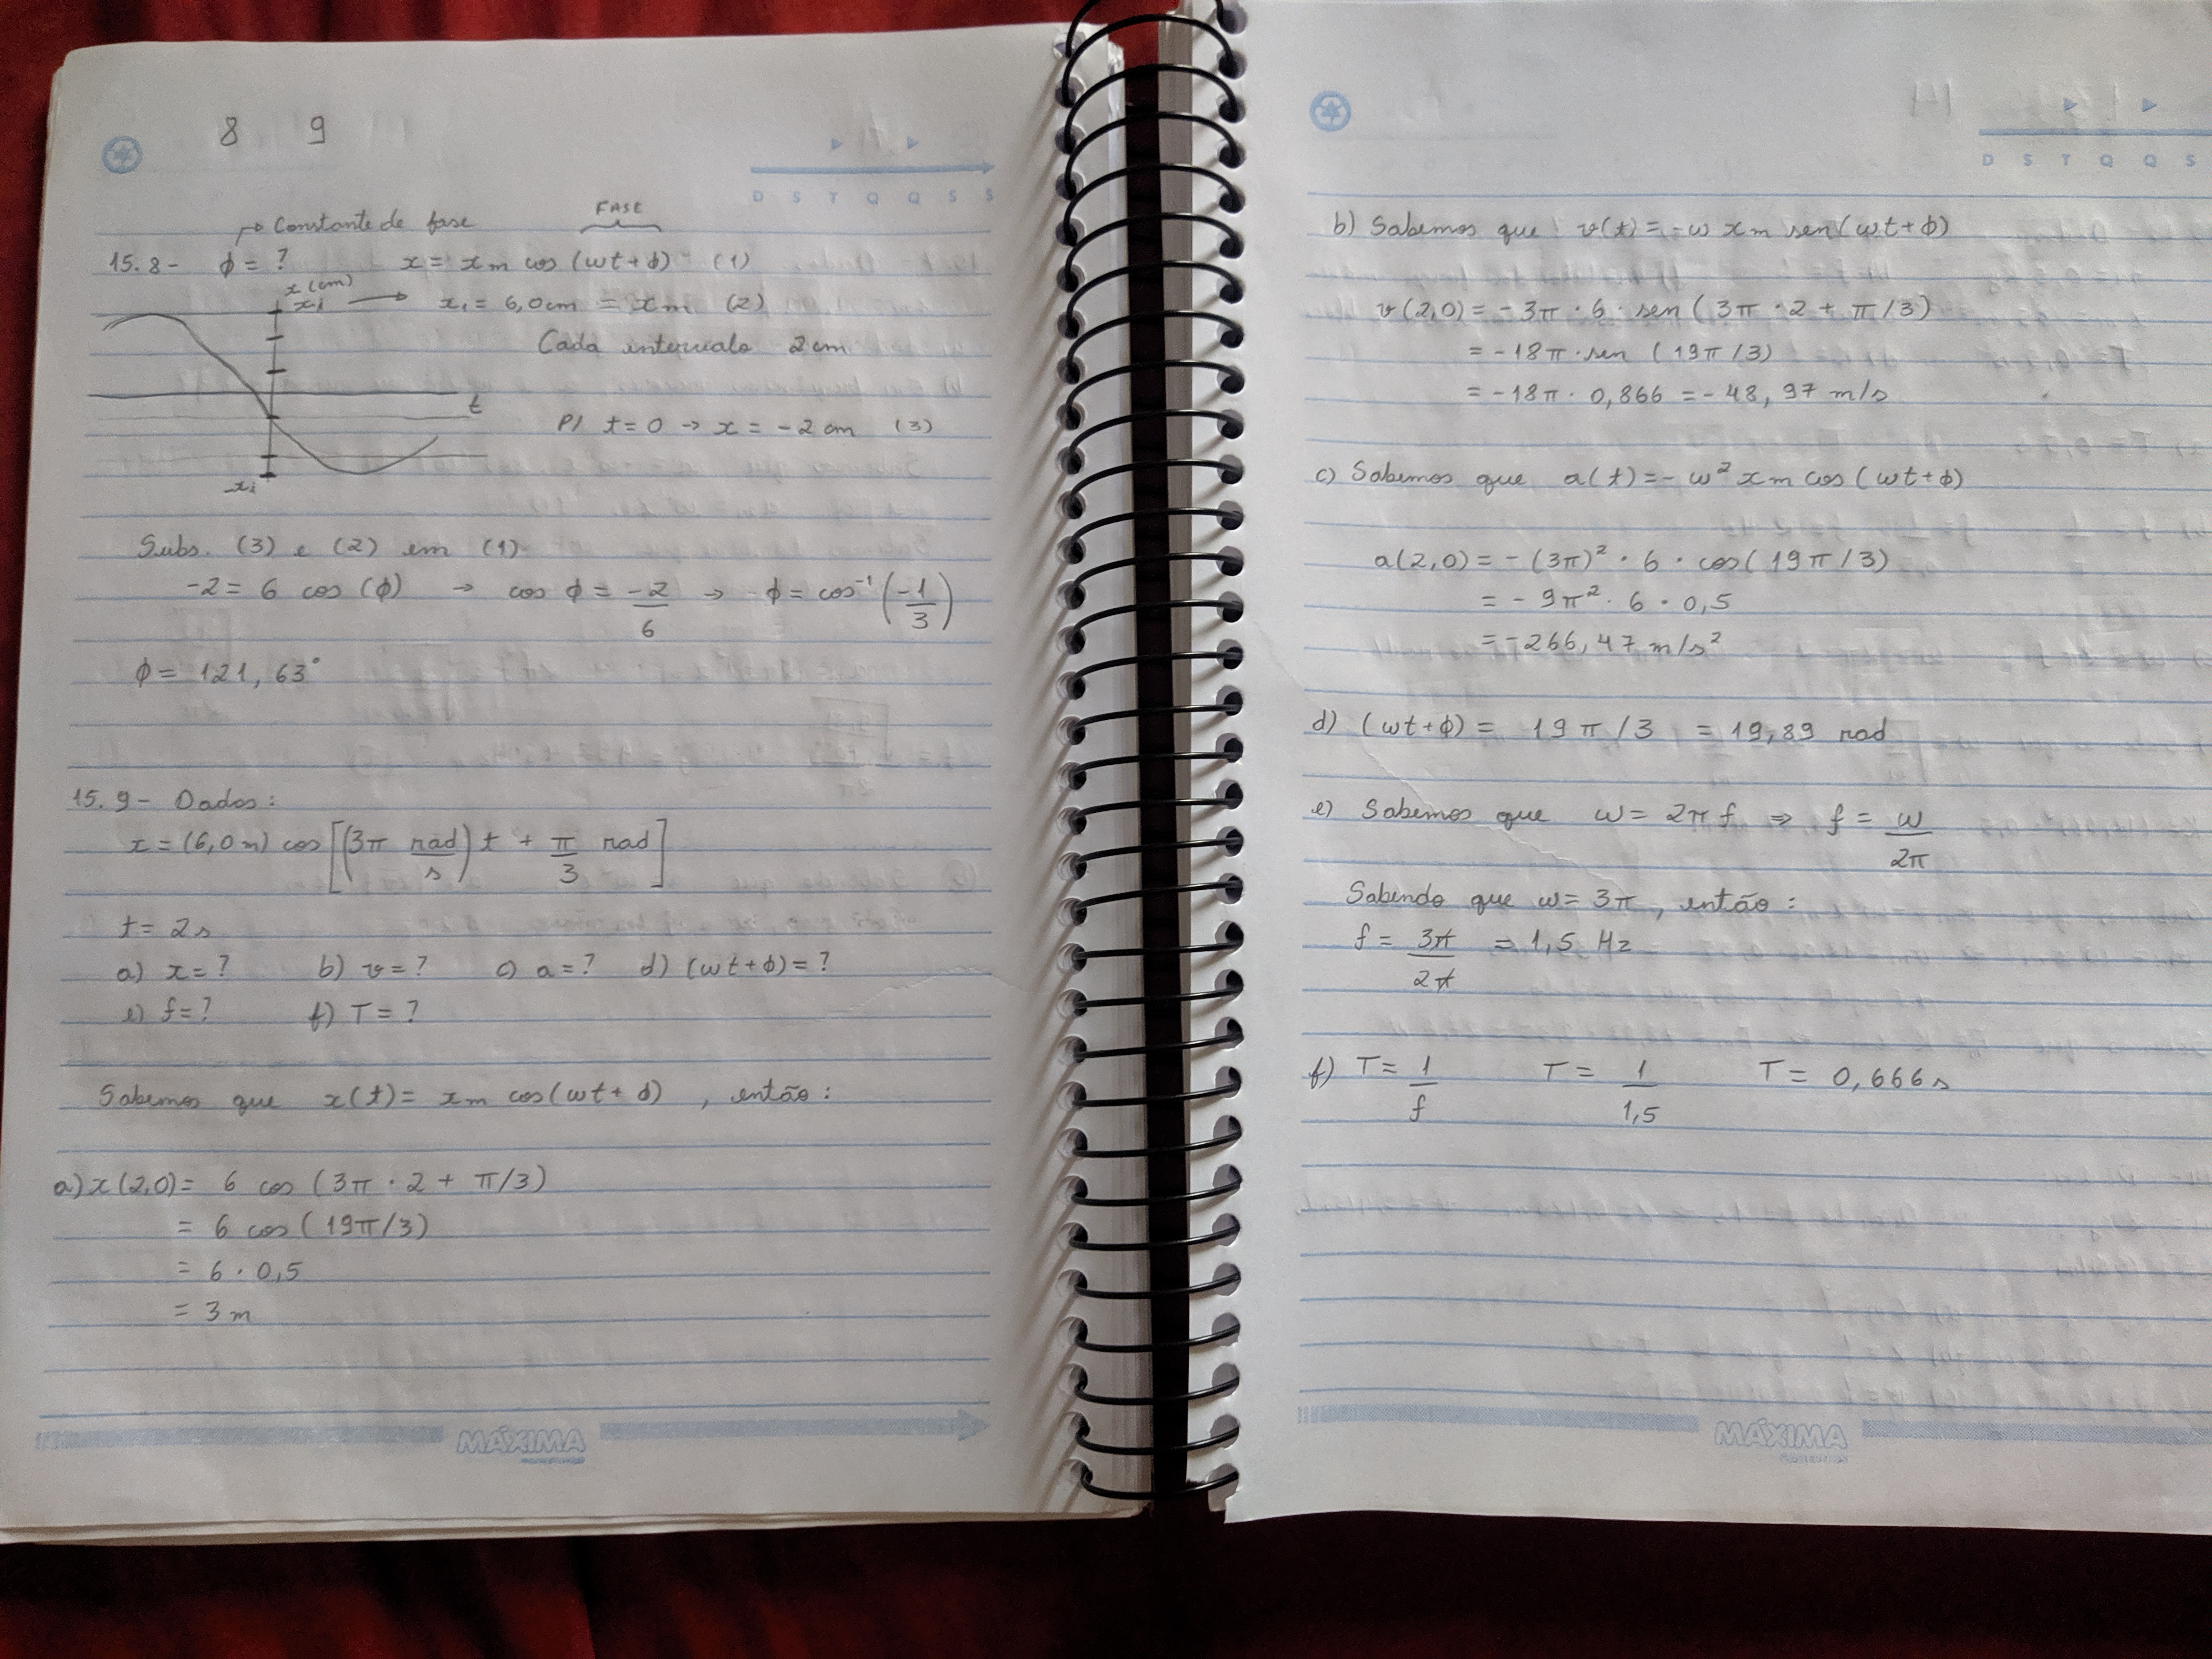 8 9
D S T Q Q S S
→ Constante de fase
FASE
15.8 - ϕ = ? x = xm cos (wt + ϕ) (1)
x(cm)
x₁ → x₁ = 6,0cm = xm (2)
Cada intervalo 2cm
t
P/ t = 0 → x = -2cm (3)
Subs. (3) e (2) em (1)
-2 = 6 cos (ϕ) → cos ϕ = -2/6 → ϕ = cos⁻¹ (-1/3)
ϕ = 121,63°
15.9 - Dados:
x = (6,0m) cos [(3π rad/s) t + π/3 rad]
t = 2s
a) x = ? b) v = ? c) a = ? d) (wt + ϕ) = ?
e) f = ? f) T = ?
Sabemos que x(t) = xm cos(wt + ϕ) , então:
a) x(2,0) = 6 cos (3π · 2 + π/3)
= 6 cos (19π/3)
= 6 · 0,5
= 3m
MÁXIMA
D S T Q Q S
b) Sabemos que v(t) = -w xm sen(wt + ϕ)
v(2,0) = -3π · 6 · sen (3π · 2 + π/3)
= -18π · sen (19π/3)
= -18π · 0,866 = -48,97 m/s
c) Sabemos que a(t) = -w² xm cos (wt + ϕ)
a(2,0) = -(3π)² · 6 · cos(19π/3)
= -9π² · 6 · 0,5
= -266,47 m/s²
d) (wt + ϕ) = 19π/3 = 19,89 rad
e) Sabemos que w = 2π f ⇒ f = w/2π
Sabendo que w = 3π, então:
f = 3π/2π = 1,5 Hz
f) T = 1/f T = 1/1,5 T = 0,666s
MÁXIMA